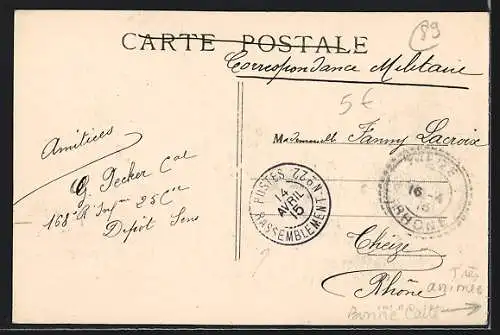 89
CARTE POSTALE
Correspondance Militaire
5€
Amitiées
G. Pecker Cal
168e R Infie 25 Cie
Dépôt Sens
Mademoiselle Fanny Lacroix
POSTES RASSEMBLEMENT N°22
14
AVRIL
15
16-4
15
RHÔNE
Theizé
Rhône
Très
animée
Bonne Carte